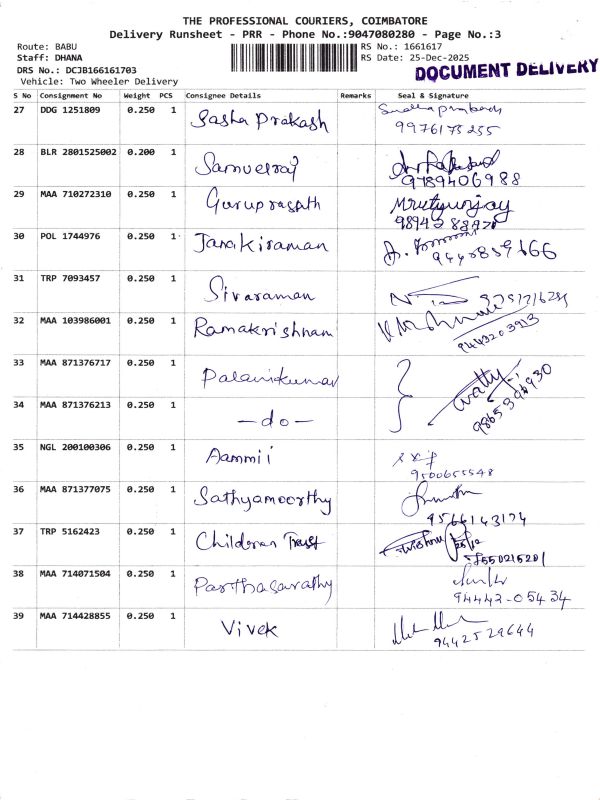 THE PROFESSIONAL COURIERS, COIMBATORE
Delivery Runsheet - PRR - Phone No.:9047080280 - Page No.:3
Route: BABU
Staff: DHANA
DRS No.: DCJB166161703
Vehicle: Two Wheeler Delivery
RS No.: 1661617
RS Date: 25-Dec-2025
DOCUMENT DELIVERY
S No Consignment No Weight PCS Consignee Details Remarks Seal & Signature
27 DDG 1251809 0.250 1 Sasha Prakash
9976175255
28 BLR 2801525002 0.200 1 Samuelraj
9789406988
29 MAA 710272310 0.250 1 Guruprasath Mrutyunjay
30 POL 1744976 0.250 1 Janakiraman
31 TRP 7093457 0.250 1 Sivaraman
32 MAA 103986001 0.250 1 Ramakrishnan
9443203913
33 MAA 871376717 0.250 1 Palanikumar
34 MAA 871376213 0.250 1 -do-
35 NGL 200100306 0.250 1 Aammii
9500655548
36 MAA 871377075 0.250 1 Sathyamoorthy
9566143174
37 TRP 5162423 0.250 1 Childeran Trust
38 MAA 714071504 0.250 1 Parthasarathy
94442-05434
39 MAA 714428855 0.250 1 Vivek
9442529644